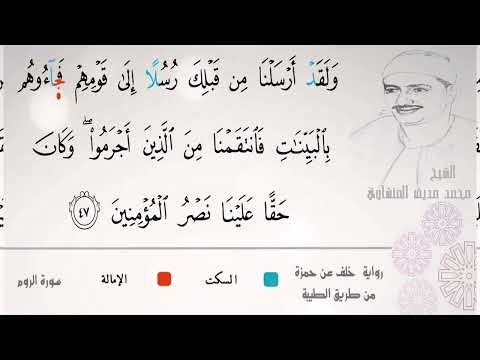 وَلَقَدۡ أَرۡسَلۡنَا مِن قَبۡلِكَ رُسُلًا إِلَىٰ قَوۡمِهِمۡ فَجَآءُوهُم
بِٱلۡبَيِّنَٰتِ فَٱنتَقَمۡنَا مِنَ ٱلَّذِينَ أَجۡرَمُواْۖ وَكَانَ
حَقًّا عَلَيۡنَا نَصۡرُ ٱلۡمُؤۡمِنِينَ ٤٧
الشيخ
محمد صديق المنشاوي
رواية خلف عن حمزة
من طريق الطيبة
السكت
الإمالة
سورة الروم